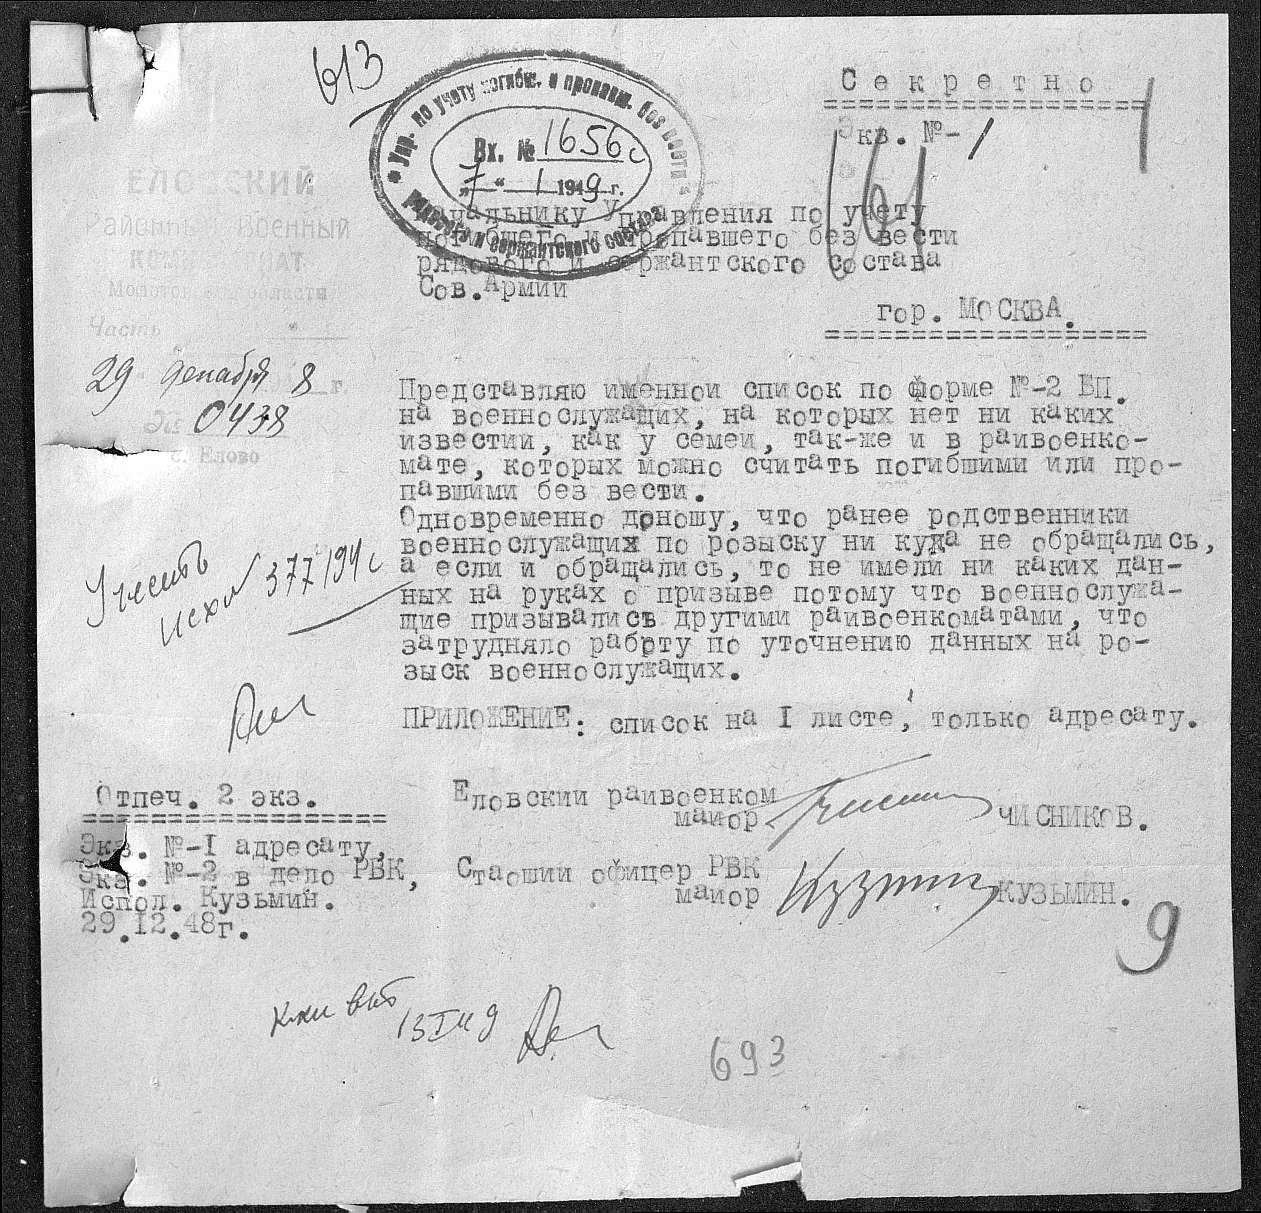 613
Секретно
Экз. №-1
161
1
* Упр. по учету погибш. и пропавш. без вести *
рядового и сержантского состава
Вх. № 1656с
„7“ 1 1949 г.
ЕЛОВСКИЙ
Районный Военный
КОМИССАРИАТ
Молотовской области
Часть
29 декабря 8 г.
№ 0438
с. Елово
Начальнику Управления по учету
погибшего и пропавшего без вести
рядового и сержантского состава
Сов.Армии
гор. МОСКВА.
Представляю именнои список по форме №-2 БП.
на военнослужащих, на которых нет ни каких
известии, как у семеи, так-же и в раивоенко-
мате, которых можно считать погибшими или про-
павшими без вести.
Одновременно доношу, что ранее родственники
военнослужащих по розыску ни куда не обращались,
а если и обращались, то не имели ни каких дан-
ных на руках о призыве потому что военнослужа-
щие призывались другими раивоенкоматами, что
затрудняло работу по уточнению данных на ро-
зыск военнослужащих.
Учесть
исх №
ПРИЛОЖЕНИЕ: список на I листе, только адресату.
Отпеч. 2 экз.
Экз. №-I адресату,
Экз. №-2 в дело РВК,
Испол. Кузьмин.
29.12.48г.
Еловскии раивоенком
маиор ЧИСНИКОВ.
Стаоший офицер РВК
маиор КУЗЬМИН.
9
693